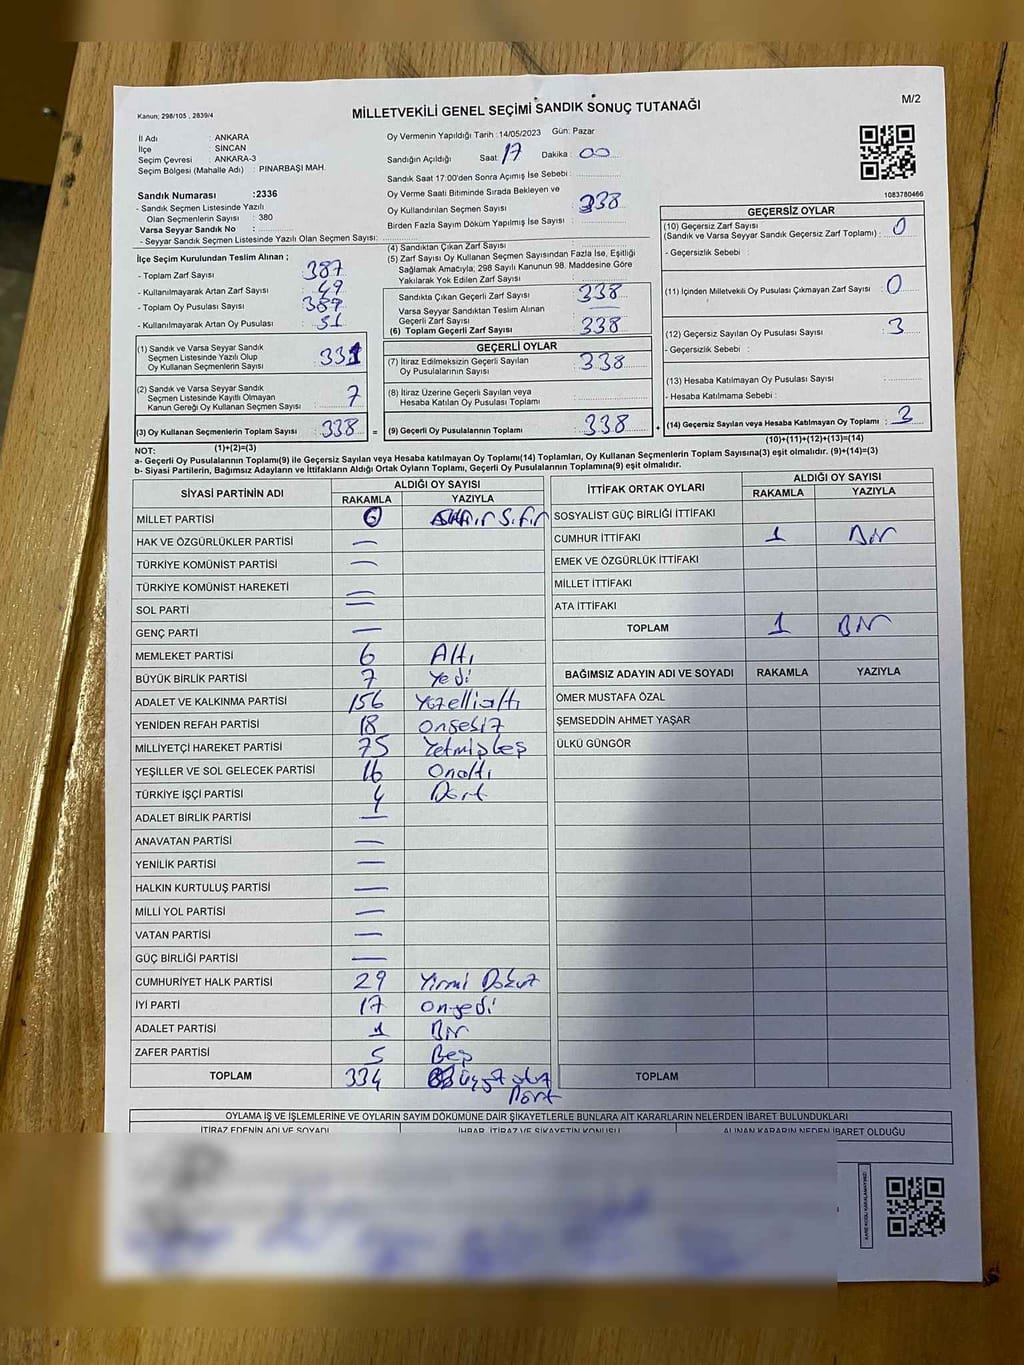 Kanun; 298/105 , 2839/4
MİLLETVEKİLİ GENEL SEÇİMİ SANDIK SONUÇ TUTANAĞI
M/2
İl Adı : ANKARA
İlçe : SİNCAN
Seçim Çevresi : ANKARA-3
Seçim Bölgesi (Mahalle Adı) : PINARBAŞI MAH.
Sandık Numarası :2336
- Sandık Seçmen Listesinde Yazılı
Olan Seçmenlerin Sayısı : 380
Varsa Seyyar Sandık No :
- Seyyar Sandık Seçmen Listesinde Yazılı Olan Seçmen Sayısı:
Oy Vermenin Yapıldığı Tarih :14/05/2023 Gün: Pazar
Sandığın Açıldığı Saat: 17 Dakika : 00
Sandık Saat 17:00'den Sonra Açımış İse Sebebi :
Oy Verme Saati Bitiminde Sırada Bekleyen ve
Oy Kullandırılan Seçmen Sayısı : 338
Birden Fazla Sayım Döküm Yapılmış İse Sayısı :
1083780466
İlçe Seçim Kurulundan Teslim Alınan ;
- Toplam Zarf Sayısı : 387
- Kullanılmayarak Artan Zarf Sayısı : 49
- Toplam Oy Pusulası Sayısı : 389
- Kullanılmayarak Artan Oy Pusulası : 51
(1) Sandık ve Varsa Seyyar Sandık
Seçmen Listesinde Yazılı Olup
Oy Kullanan Seçmenlerin Sayısı : 331
(2) Sandık ve Varsa Seyyar Sandık
Seçmen Listesinde Kayıtlı Olmayan
Kanun Gereği Oy Kullanan Seçmen Sayısı : 7
(3) Oy Kullanan Seçmenlerin Toplam Sayısı : 338 =
(1)+(2)=(3)
(4) Sandıktan Çıkan Zarf Sayısı :
(5) Zarf Sayısı Oy Kullanan Seçmen Sayısından Fazla İse, Eşitliği
Sağlamak Amacıyla; 298 Sayılı Kanunun 98. Maddesine Göre
Yakılarak Yok Edilen Zarf Sayısı :
Sandıkta Çıkan Geçerli Zarf Sayısı : 338
Varsa Seyyar Sandıktan Teslim Alınan
Geçerli Zarf Sayısı :
(6) Toplam Geçerli Zarf Sayısı : 338
GEÇERLİ OYLAR
(7) İtiraz Edilmeksizin Geçerli Sayılan
Oy Pusulalarının Sayısı : 338
(8) İtiraz Üzerine Geçerli Sayılan veya
Hesaba Katılan Oy Pusulası Toplamı :
(9) Geçerli Oy Pusulalarının Toplamı : 338 +
GEÇERSİZ OYLAR
(10) Geçersiz Zarf Sayısı
(Sandık ve Varsa Seyyar Sandık Geçersiz Zarf Toplamı) : 0
- Geçersizlik Sebebi :
(11) İçinden Milletvekili Oy Pusulası Çıkmayan Zarf Sayısı : 0
(12) Geçersiz Sayılan Oy Pusulası Sayısı : 3
- Geçersizlik Sebebi :
(13) Hesaba Katılmayan Oy Pusulası Sayısı :
- Hesaba Katılmama Sebebi :
(14) Geçersiz Sayılan veya Hesaba Katılmayan Oy Toplamı : 3
(10)+(11)+(12)+(13)=(14)
NOT:
a- Geçerli Oy Pusulalarının Toplamı(9) ile Geçersiz Sayılan veya Hesaba katılmayan Oy Toplamı(14) Toplamları, Oy Kullanan Seçmenlerin Toplam Sayısına(3) eşit olmalıdır. (9)+(14)=(3)
b- Siyasi Partilerin, Bağımsız Adayların ve İttifakların Aldığı Ortak Oyların Toplamı, Geçerli Oy Pusulalarının Toplamına(9) eşit olmalıdır.
SİYASİ PARTİNİN ADI ALDIĞI OY SAYISI
RAKAMLA YAZIYLA
MİLLET PARTİSİ 0 Sıfır
HAK VE ÖZGÜRLÜKLER PARTİSİ —
TÜRKİYE KOMÜNİST PARTİSİ —
TÜRKİYE KOMÜNİST HAREKETİ —
SOL PARTİ —
GENÇ PARTİ —
MEMLEKET PARTİSİ 6 Altı
BÜYÜK BİRLİK PARTİSİ 7 Yedi
ADALET VE KALKINMA PARTİSİ 156 Yüzellialtı
YENİDEN REFAH PARTİSİ 18 Onsesiz
MİLLİYETÇİ HAREKET PARTİSİ 75 Yetmişbeş
YEŞİLLER VE SOL GELECEK PARTİSİ 16 Onaltı
TÜRKİYE İŞÇİ PARTİSİ 4 Dört
ADALET BİRLİK PARTİSİ —
ANAVATAN PARTİSİ —
YENİLİK PARTİSİ —
HALKIN KURTULUŞ PARTİSİ —
MİLLİ YOL PARTİSİ —
VATAN PARTİSİ —
GÜÇ BİRLİĞİ PARTİSİ —
CUMHURİYET HALK PARTİSİ 29 Yirmi Dokuz
İYİ PARTİ 17 Onyedi
ADALET PARTİSİ 1 Bir
ZAFER PARTİSİ 5 Beş
TOPLAM 334 üçyüz otuz
Dört
İTTİFAK ORTAK OYLARI ALDIĞI OY SAYISI
RAKAMLA YAZIYLA
SOSYALİST GÜÇ BİRLİĞİ İTTİFAKI
CUMHUR İTTİFAKI 1 Bir
EMEK VE ÖZGÜRLÜK İTTİFAKI
MİLLET İTTİFAKI
ATA İTTİFAKI
TOPLAM 1 Bir
BAĞIMSIZ ADAYIN ADI VE SOYADI RAKAMLA YAZIYLA
ÖMER MUSTAFA ÖZAL
ŞEMSEDDİN AHMET YAŞAR
ÜLKÜ GÜNGÖR
TOPLAM
OYLAMA İŞ VE İŞLEMLERİNE VE OYLARIN SAYIM DÖKÜMÜNE DAİR ŞİKAYETLERLE BUNLARA AİT KARARLARIN NELERDEN İBARET BULUNDUKLARI
İTİRAZ EDENİN ADI VE SOYADI İHBAR, İTİRAZ VE ŞİKAYETİN KONUSU ALINAN KARARIN NEDEN İBARET OLDUĞU